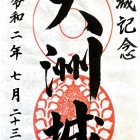 城記念
大洲城
令和二年七月二十三